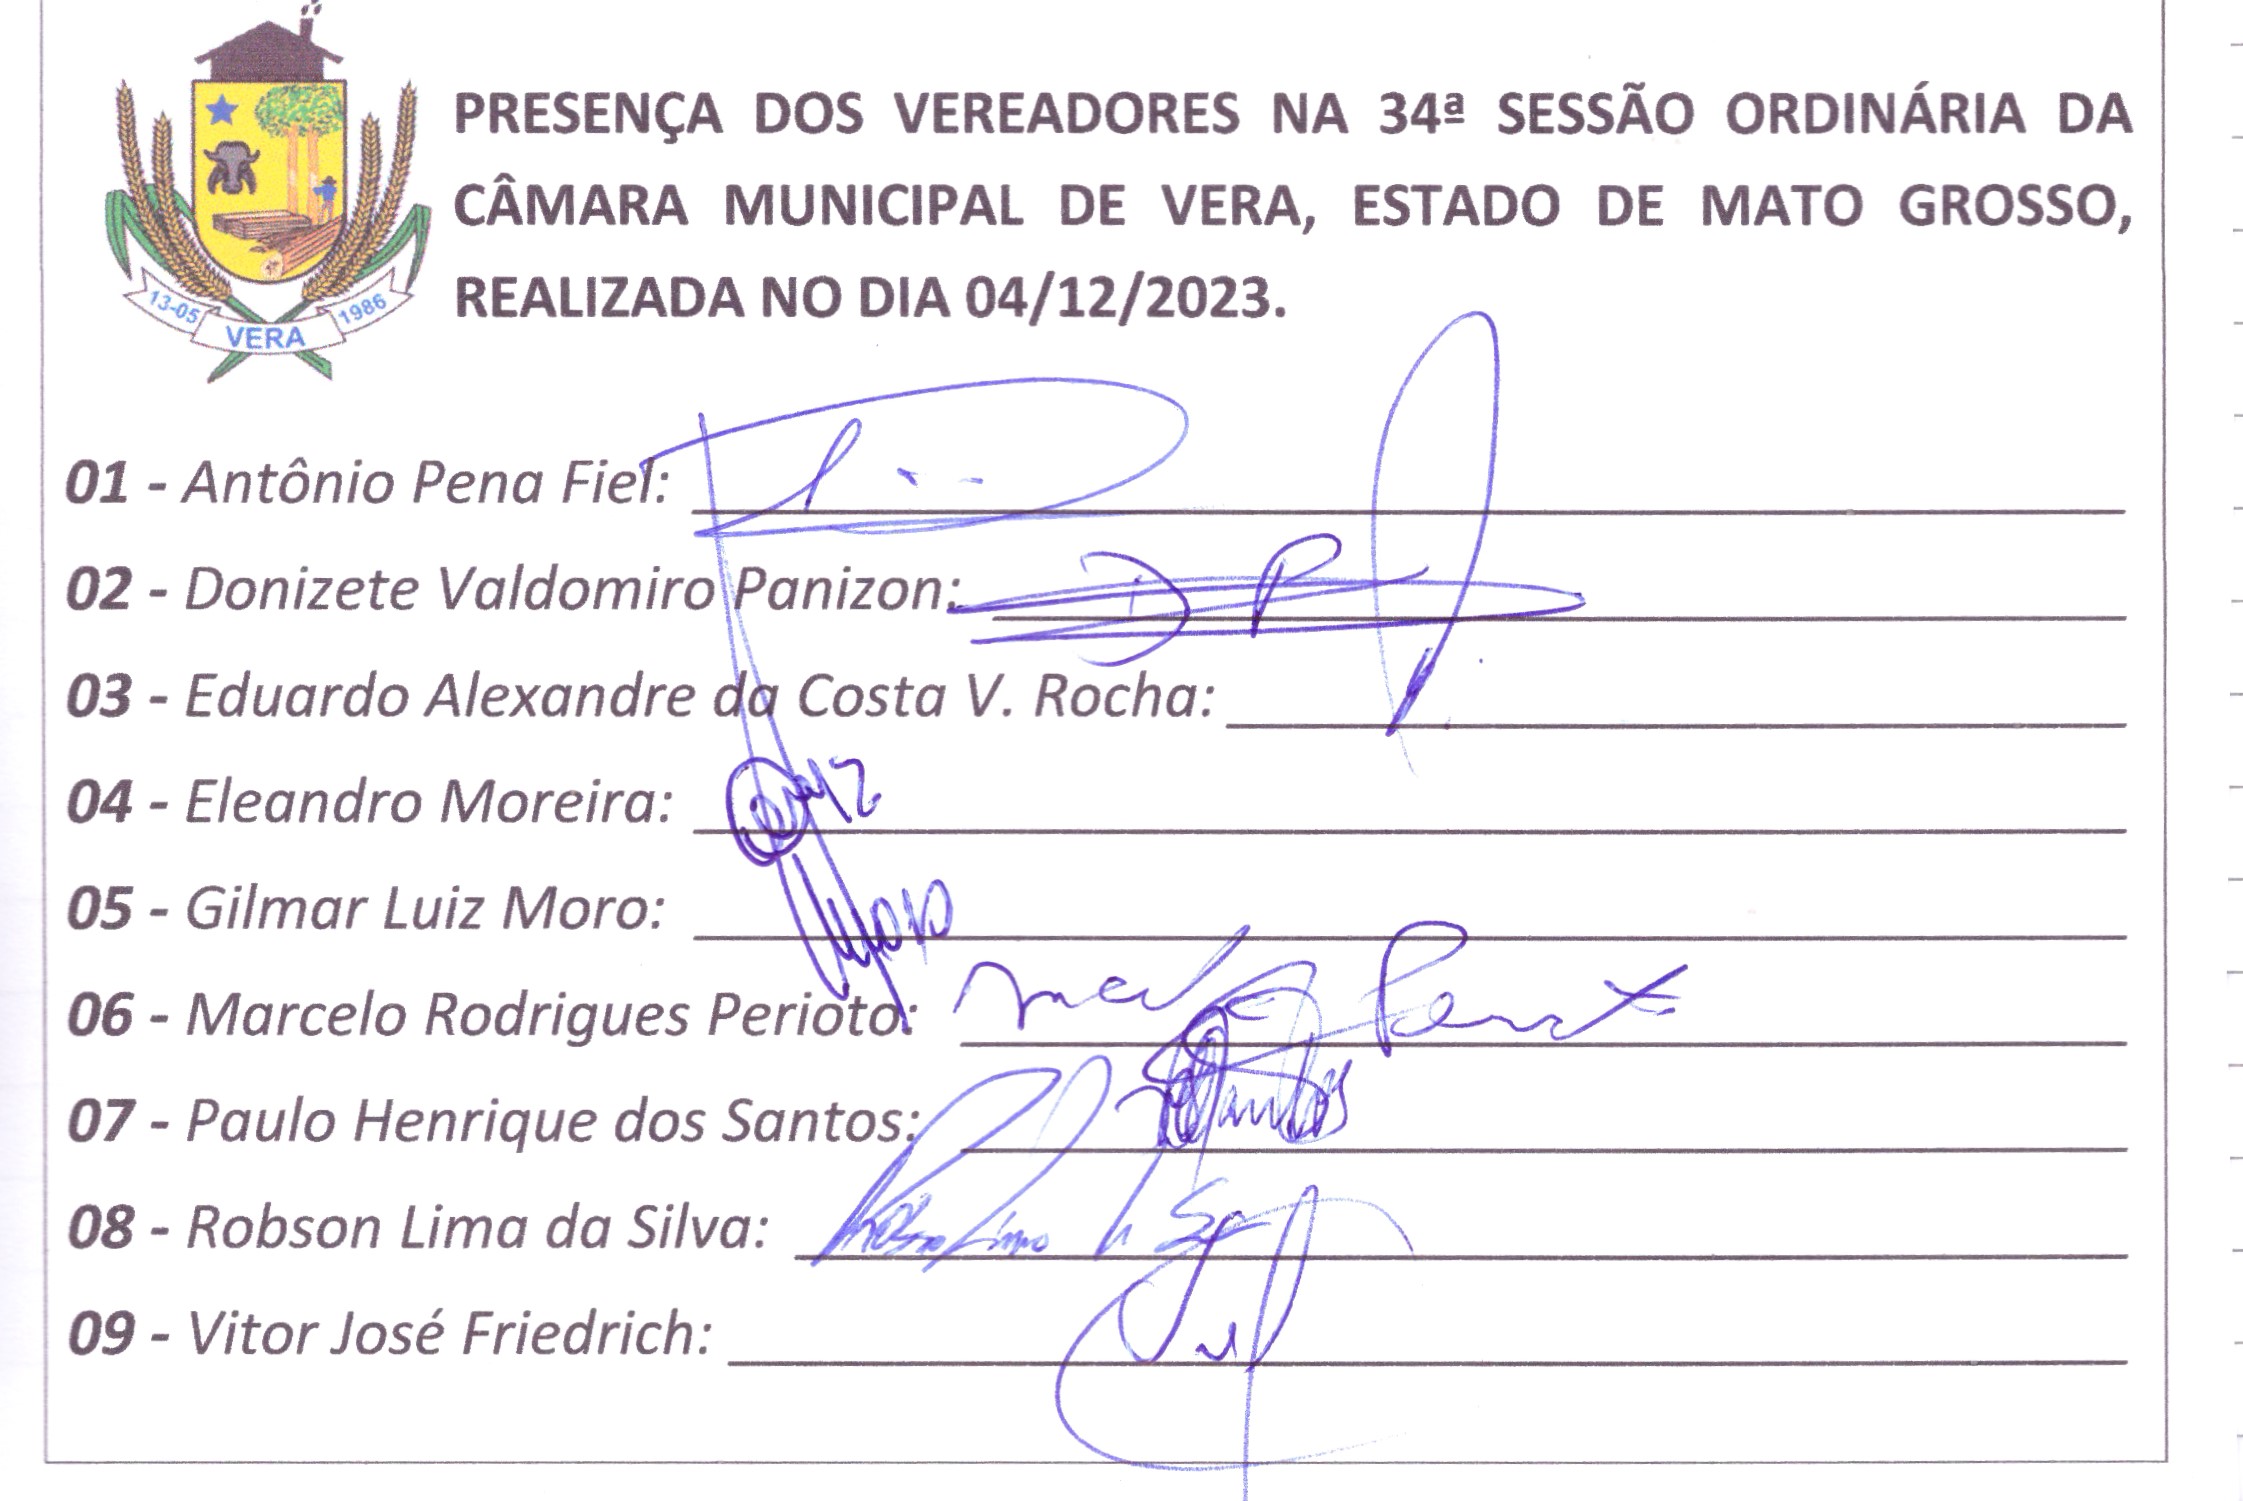 PRESENÇA DOS VEREADORES NA 34ª SESSÃO ORDINÁRIA DA
CÂMARA MUNICIPAL DE VERA, ESTADO DE MATO GROSSO,
REALIZADA NO DIA 04/12/2023.
13-05 VERA 1986
01 - Antônio Pena Fiel:
02 - Donizete Valdomiro Panizon: DP
03 - Eduardo Alexandre da Costa V. Rocha:
04 - Eleandro Moreira:
05 - Gilmar Luiz Moro:
06 - Marcelo Rodrigues Perioto:
07 - Paulo Henrique dos Santos:
08 - Robson Lima da Silva:
09 - Vitor José Friedrich: